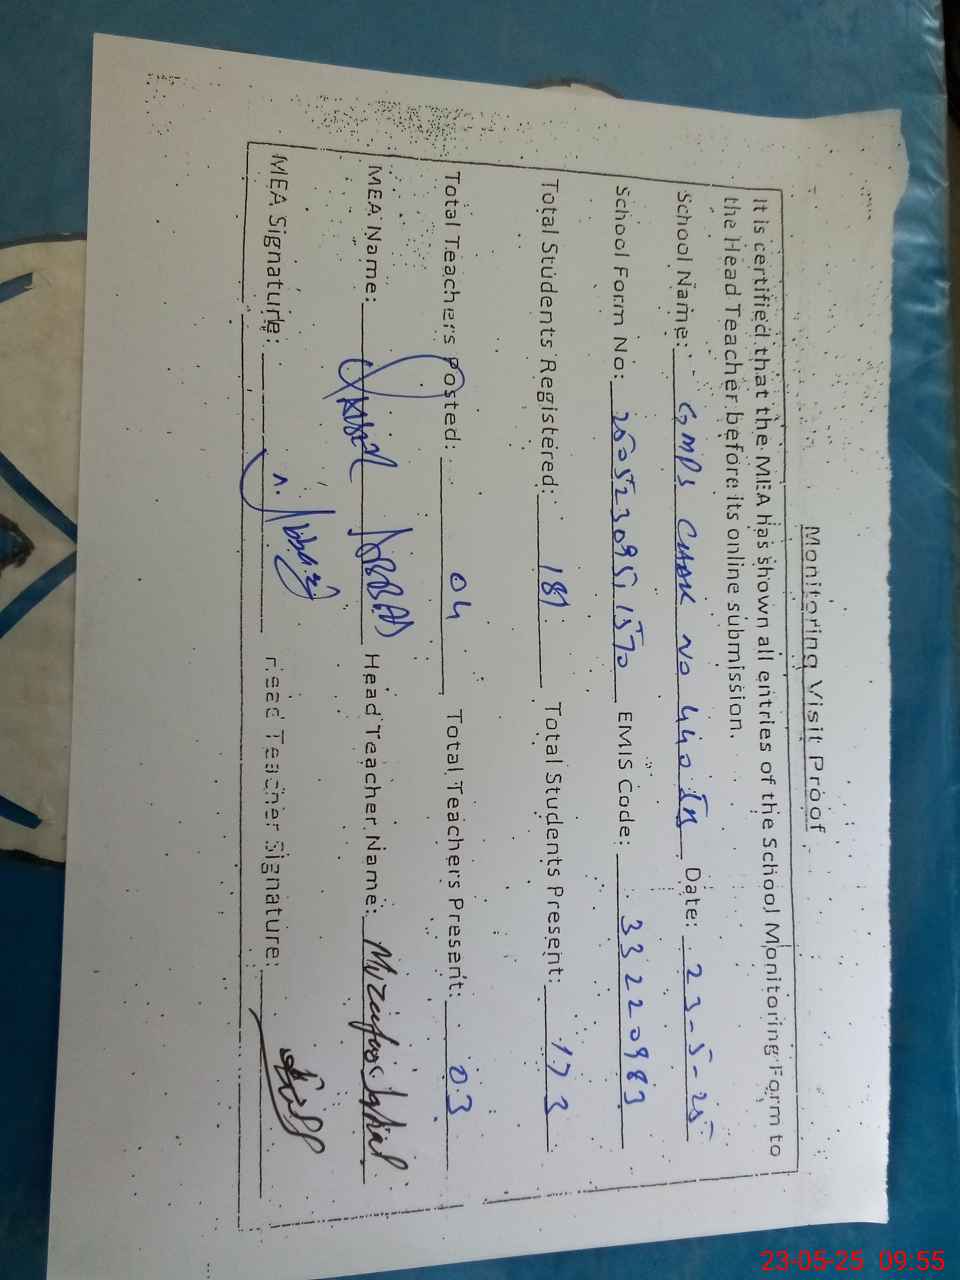 Monitoring Visit Proof
It is certified that the MEA has shown all entries of the School Monitoring Form to
the Head Teacher before its online submission.
School Name: GMPS CHAK NO 440 Date: 23-5-25
School Form No: 2505230951570 EMIS Code: 33220983
Total Students Registered: 181 Total Students Present: 173
Total Teachers Posted: 04 Total Teachers Present: 03
MEA Name: ABBAS Head Teacher Name: Iqbal
MEA Signature: Head Teacher Signature:
23-05-25 09:55